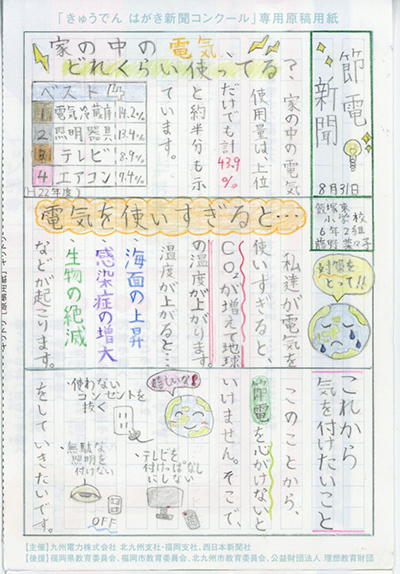 「きゅうでん はがき新聞コンクール」専用原稿用紙
節電新聞
8月31日
飯塚東
小学校
6年2組
家の中の電気
どれくらい使ってる?
家の中の電気
使用量は、上位
だけでも計43.9%
と約半分も示
ています。
ベスト4
1 電気冷蔵庫 14.2%
2 照明器具 13.4%
3 テレビ 8.9%
4 エアコン 7.4%
(H22年度)
電気を使いすぎると…
対策をとって!!
私達が電気を
使いすぎると、
CO₂が増えて地球
の温度が上がります。
温度が上がると…
・海面の上昇
・感染症の増大
・生物の絶滅
などが起こります。
これから
気を付けたいこと
このことから、
節電を心がけないと
いけません。そこで、
嬉しいな!
・使わない
コンセントを
抜く
・テレビを
付けっぱなし
にしない
・無駄な
照明を
付けない
OFF
をしていきたいです。
【主催】九州電力株式会社 北九州支社・福岡支社、西日本新聞社
【後援】福岡県教育委員会、福岡市教育委員会、北九州市教育委員会、公益財団法人 理想教育財団